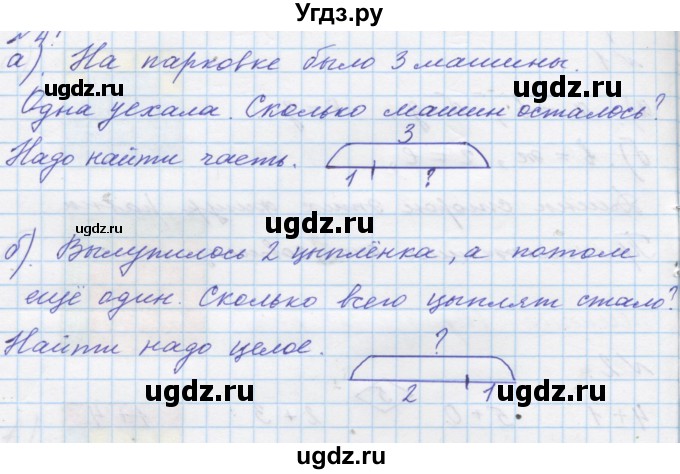 Угдз.ру
№ 4.
а) На парковке было 3 машины.
Одна уехала. Сколько машин осталось?
Надо найти часть.
3
1 ?
б) Вылупилось 2 цыплёнка, а потом
ещё один. Сколько всего цыплят стало?
Найти надо целое.
?
2 1
ugdz.ru
ugdz.ru
ugdz.ru
ugdz.ru
ugdz.ru
ugdz.ru
ugdz.ru
ugdz.ru